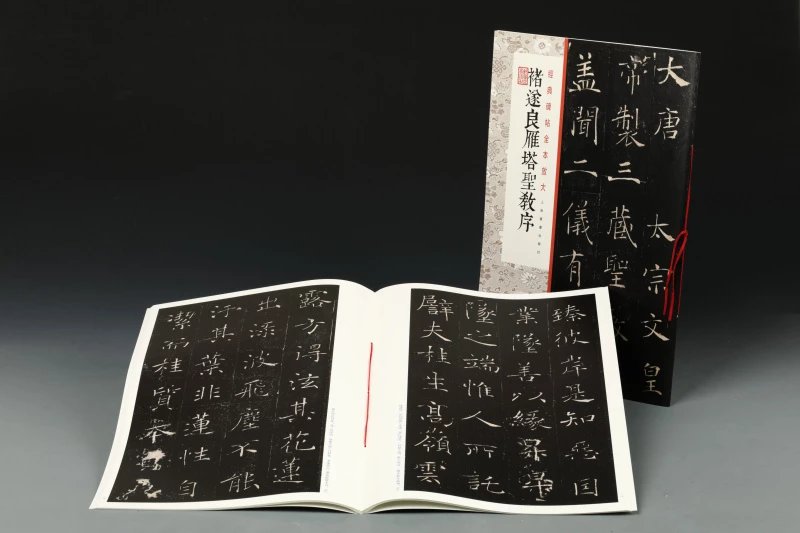 經典碑帖全本放大
褚遂良雁塔聖教序
大唐 太宗文皇
帝製三藏聖教
盖聞二儀有
臻彼岸是知惡因
業墜善以緣昇昇
墜之端惟人所託
譬夫桂生高嶺雲
露方得泫其花蓮
出淥波飛塵不能
汙其葉非蓮性自
潔而桂質本